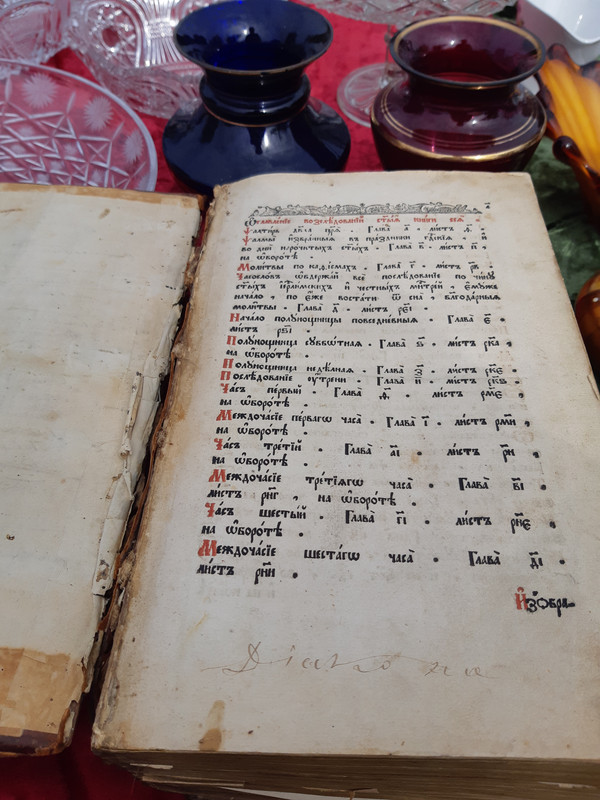 Ѽглавленїе послѣдованїй ст҃ы́ѧ кни́ги сеѧ̀ .
Ѱалти́рь дв҃да пр҇ка . Глава̀ а҃ . ли́стъ д҃ .
Ѱалмы̀ и҆збра́нныѧ въ пра́здники гд҇скїѧ . и҆
во днѝ нарочи́тыхъ ст҃ы́хъ . Глава̀ в҃ . ли́стъ
на ѡ҆боро́тѣ .
Моли́твы по каѳі́смахъ . Глава̀ г҃ . ли́стъ
Часосло́въ ѡ҆держа́й всѐ послѣ́дованїе по чи́нꙋ
ст҃ы́хъ і҆ерл҇и́мскихъ и҆ честны́хъ мѡнⷭ҇тыре́й , є҆мꙋ́же
нача́ло , по є҆́же воста́ти ѿ сна̀ , блг҃ода́рныѧ
моли́твы . Глава̀ д҃ . ли́стъ рє҃і .
Нача́ло полꙋ́нощницы повседне́вныѧ . Глава̀ є҃ .
ли́стъ рѕ҃і .
Полꙋ́нощница сꙋббѡ́тнаѧ . Глава̀ ѕ҃ . ли́стъ рк҃а .
на ѡ҆боро́тѣ .
Полꙋ́нощница недѣ́лнаѧ . Глава̀ з҃ . ли́стъ рк҃є .
Послѣ́дованїе ᲂу҆́трени . Глава̀ и҃ . ли́стъ
Ча́съ пе́рвый . Глава̀ ѳ҃ . ли́стъ рм҃є
на ѡ҆боро́тѣ .
Междоча́сїе пе́рвагѡ часа̀ . Глава̀ і҃ . ли́стъ рм҃и
на ѡ҆боро́тѣ .
Ча́съ тре́тїй . Глава̀ а҃і . ли́стъ рн҃
на ѡ҆боро́тѣ .
Междоча́сїе тре́тїѧгѡ часа̀ . Глава̀ в҃і .
ли́стъ рн҃г , на ѡ҆боро́тѣ .
Ча́съ шесты́й . Глава̀ г҃і . ли́стъ рн҃є
на ѡ҆боро́тѣ .
Междоча́сїе шеста́гѡ часа̀ . Глава̀ д҃і .
ли́стъ рн҃и .
И҆з̾ѡбра